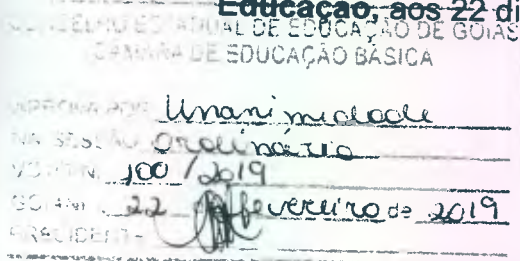 Educação, aos 22 di
CONSELHO ESTADUAL DE EDUCAÇÃO DE GOIÁS
CÂMARA DE EDUCAÇÃO BÁSICA
APROVADA POR Unanimidade
NA SESSÃO Ordinária
VOTO N. 100/2019
GOIÂNIA 22 fevereiro de 2019
PRESIDENTE